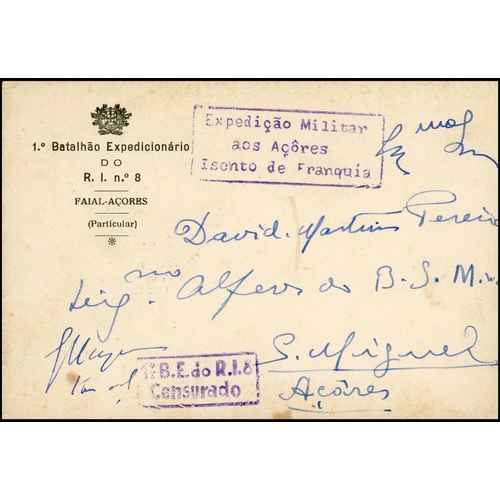 1.º Batalhão Expedicionário
DO
R. I. n.º 8
FAIAL-AÇORES
(Particular)
Expedição Militar
aos Açôres
Isento de Franquía
David Martins Pereira
Alferes do B. S. M.
S. Miguel
Açôres
B.E.do R.I.8
Censurado